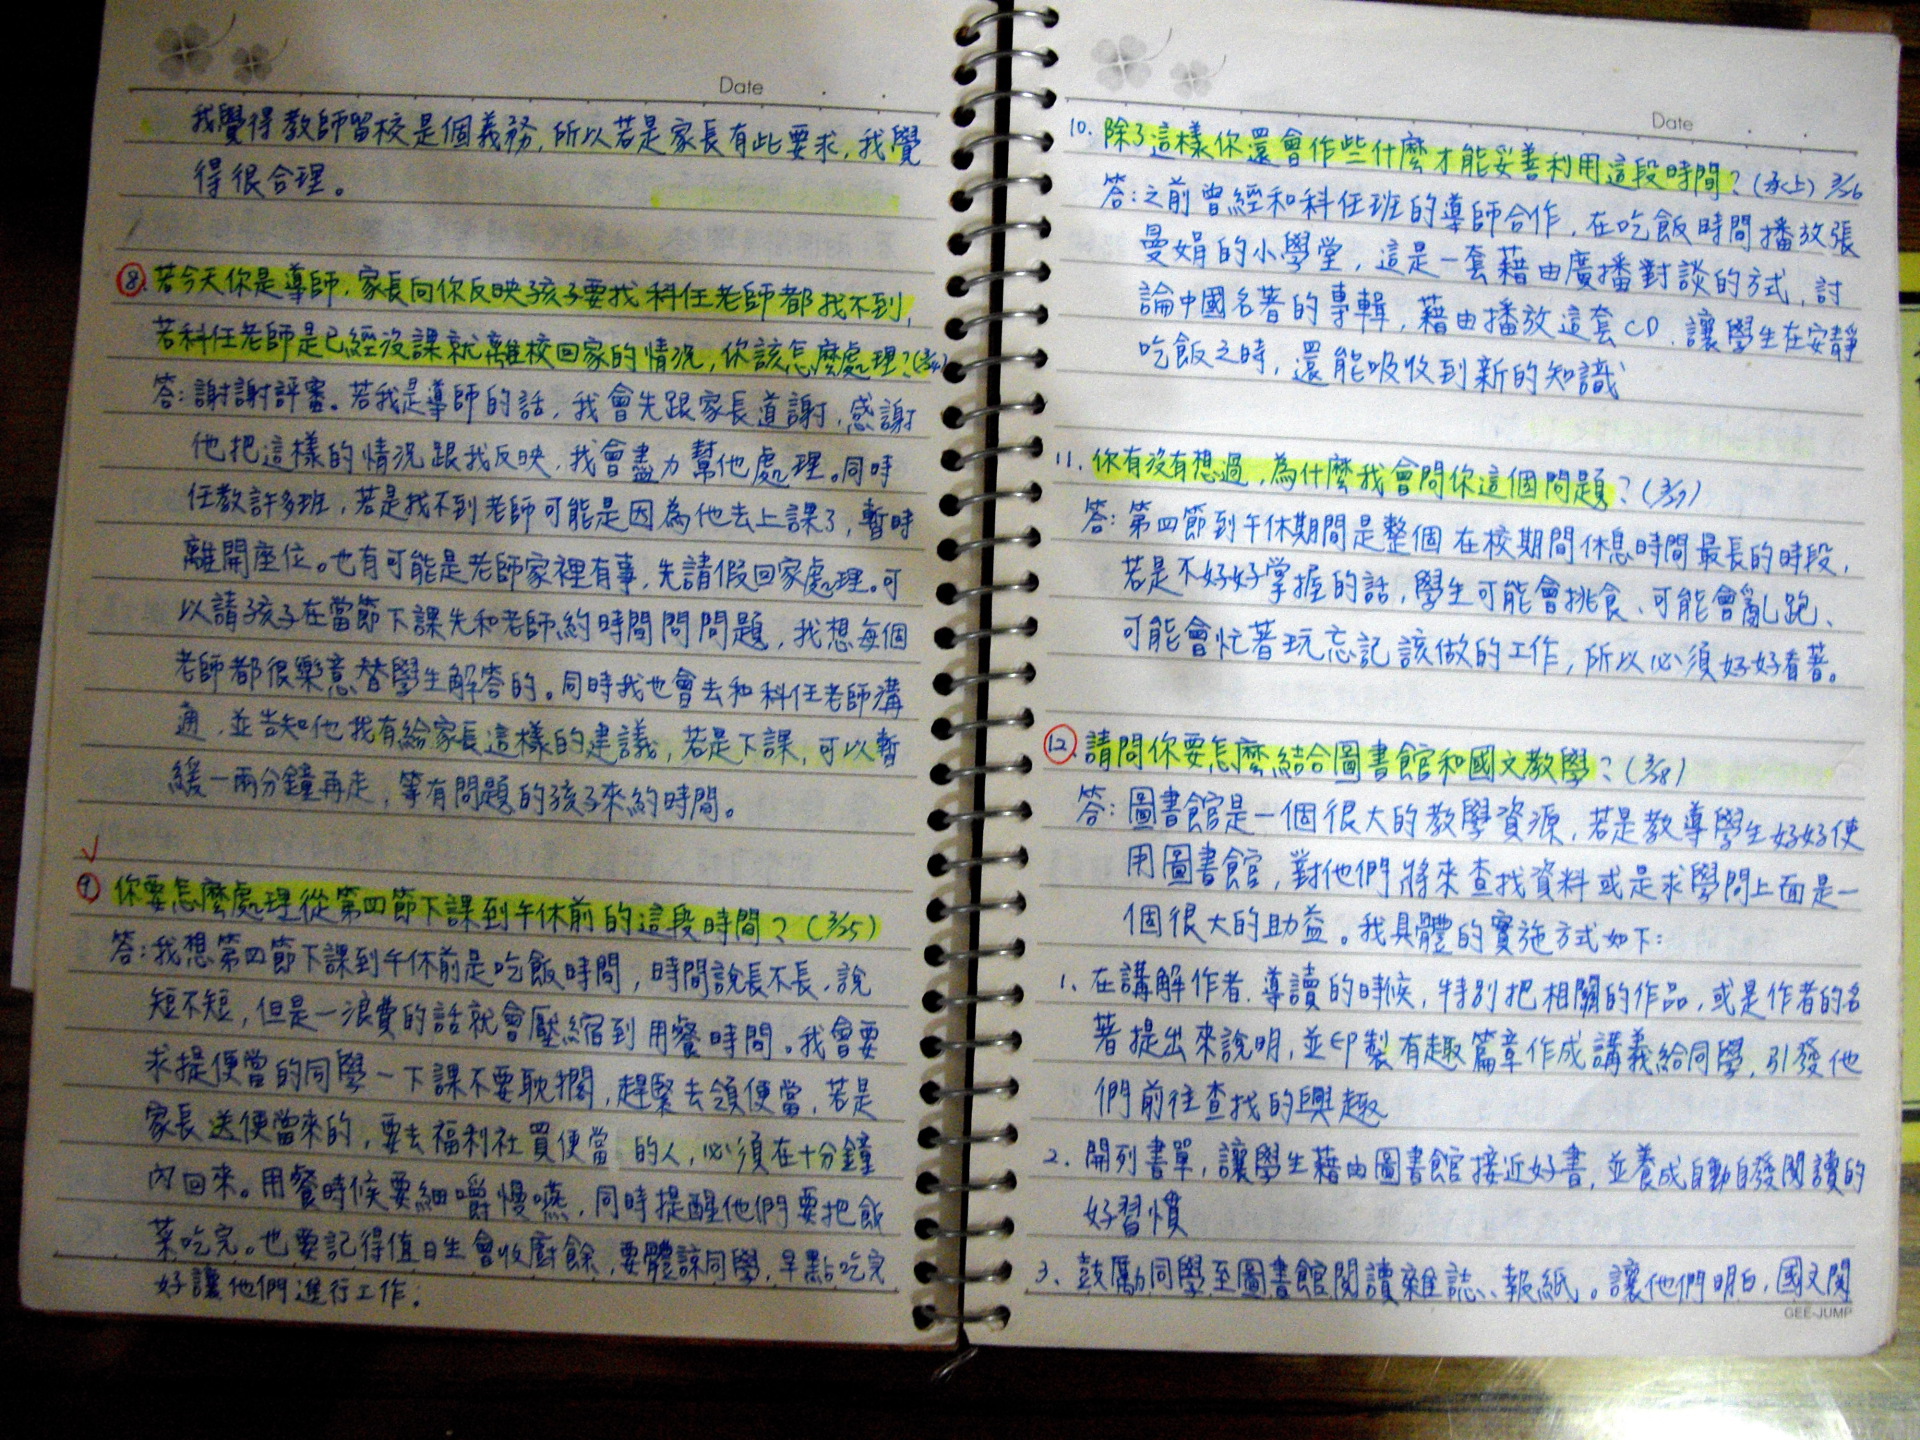 Date
我覺得教師留校是個義務，所以若是家長有此要求，我覺
得很合理。
8. 若今天你是導師，家長向你反映孩子要找科任老師都找不到，
若科任老師是已經沒課就離校回家的情況，你該怎麼處理？
答：謝謝評審。若我是導師的話，我會先跟家長道謝，感謝
他把這樣的情況跟我反映，我會盡力幫他處理。同時
任教許多班，若是找不到老師可能是因為他去上課了，暫時
離開座位。也有可能是老師家裡有事，先請假回家處理。可
以請孩子在當節下課先和老師約時間問問題，我想每個
老師都很樂意替學生解答的。同時我也會去和科任老師溝
通，並告知他我有給家長這樣的建議，若是下課，可以暫
緩一兩分鐘再走，等有問題的孩子來約時間。
9. 你要怎麼處理從第四節下課到午休前的這段時間？(3/25)
答：我想第四節下課到午休前是吃飯時間，時間說長不長，說
短不短，但是一浪費的話就會壓縮到用餐時間。我會要
求提便當的同學一下課不要耽擱，趕緊去領便當，若是
家長送便當來的，要去福利社買便當的人，必須在十分鐘
內回來。用餐時候要細嚼慢嚥，同時提醒他們要把飯
菜吃完。也要記得值日生會收廚餘，要體諒同學，早點吃完
好讓他們進行工作.
Date
10. 除了這樣你還會作些什麼才能妥善利用這段時間？(承上) 3/26
答：之前曾經和科任班的導師合作，在吃飯時間播放張
曼娟的小學堂，這是一套藉由廣播對談的方式，討
論中國名著的專輯，藉由播放這套CD，讓學生在安靜
吃飯之時，還能吸收到新的知識
11. 你有沒有想過，為什麼我會問你這個問題？(3/27)
答：第四節到午休期間是整個在校期間休息時間最長的時段，
若是不好好掌握的話，學生可能會挑食、可能會亂跑、
可能會忙著玩忘記該做的工作，所以必須好好看著。
12. 請問你要怎麼結合圖書館和國文教學？(3/28)
答：圖書館是一個很大的教學資源，若是教導學生好好使
用圖書館，對他們將來查找資料或是求學問上面是一
個很大的助益。我具體的實施方式如下：
1、在講解作者、導讀的時候，特別把相關的作品，或是作者的名
著提出來說明，並印製有趣篇章作成講義給同學，引發他
們前往查找的興趣
2、開列書單，讓學生藉由圖書館接近好書，並養成自動自發閱讀的
好習慣
3、鼓勵同學至圖書館閱讀雜誌、報紙。讓他們明白，國文閱
GEE-JUMP